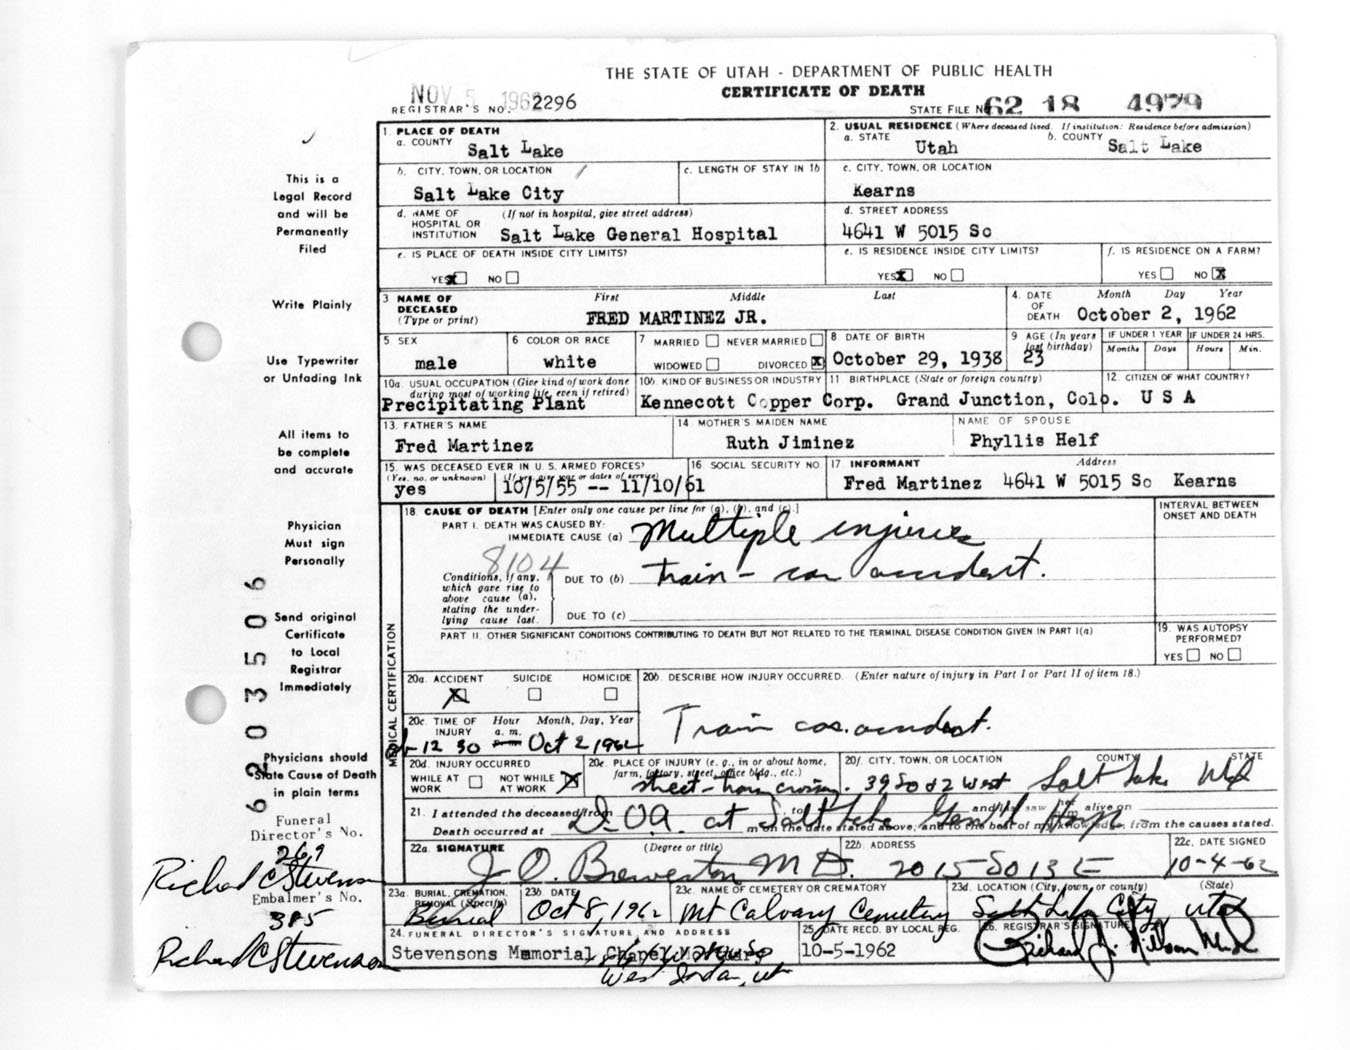 THE STATE OF UTAH - DEPARTMENT OF PUBLIC HEALTH
CERTIFICATE OF DEATH
NOV 5 1962
REGISTRAR'S NO. 2296
STATE FILE NO. 62 18 4979
1. PLACE OF DEATH
a. COUNTY Salt Lake
2. USUAL RESIDENCE (Where deceased lived. If institution: Residence before admission)
a. STATE Utah b. COUNTY Salt Lake
b. CITY, TOWN, OR LOCATION Salt Lake City
c. LENGTH OF STAY IN 1b
c. CITY, TOWN, OR LOCATION
Kearns
d. NAME OF HOSPITAL OR INSTITUTION (If not in hospital, give street address)
Salt Lake General Hospital
d. STREET ADDRESS
4641 W 5015 So
e. IS PLACE OF DEATH INSIDE CITY LIMITS?
YES X NO
e. IS RESIDENCE INSIDE CITY LIMITS?
YES X NO
f. IS RESIDENCE ON A FARM?
YES NO X
3 NAME OF DECEASED (Type or print) First Middle Last
FRED MARTINEZ JR.
4. DATE OF DEATH Month Day Year
October 2, 1962
5 SEX
male
6 COLOR OR RACE
white
7 MARRIED NEVER MARRIED
WIDOWED DIVORCED X
8 DATE OF BIRTH
October 29, 1938
9 AGE (In years last birthday)
23
IF UNDER 1 YEAR IF UNDER 24 HRS.
Months Days Hours Min.
10a. USUAL OCCUPATION (Give kind of work done during most of working life, even if retired)
Precipitating Plant
10b. KIND OF BUSINESS OR INDUSTRY
Kennecott Copper Corp.
11 BIRTHPLACE (State or foreign country)
Grand Junction, Colo.
12. CITIZEN OF WHAT COUNTRY?
U S A
13. FATHER'S NAME
Fred Martinez
14 MOTHER'S MAIDEN NAME
Ruth Jiminez
NAME OF SPOUSE
Phyllis Helf
15. WAS DECEASED EVER IN U.S. ARMED FORCES?
(Yes, no, or unknown) (If yes, give war or dates of service)
yes 10/5/55 -- 11/10/61
16 SOCIAL SECURITY NO.
17 INFORMANT Address
Fred Martinez 4641 W 5015 So Kearns
18 CAUSE OF DEATH [Enter only one cause per line for (a), (b), and (c).]
INTERVAL BETWEEN ONSET AND DEATH
PART I. DEATH WAS CAUSED BY:
IMMEDIATE CAUSE (a) Multiple injuries
8104
Conditions, if any, which gave rise to above cause (a), stating the underlying cause last.
DUE TO (b) Train - car accident.
DUE TO (c)
PART II. OTHER SIGNIFICANT CONDITIONS CONTRIBUTING TO DEATH BUT NOT RELATED TO THE TERMINAL DISEASE CONDITION GIVEN IN PART I(a)
19. WAS AUTOPSY PERFORMED?
YES NO
MEDICAL CERTIFICATION
20a. ACCIDENT SUICIDE HOMICIDE
X
20b. DESCRIBE HOW INJURY OCCURRED. (Enter nature of injury in Part I or Part II of item 18.)
Train car accident.
20c. TIME OF INJURY Hour a.m. p.m. Month, Day, Year
12 30 Oct 2 1962
20d. INJURY OCCURRED
WHILE AT WORK NOT WHILE AT WORK X
20e. PLACE OF INJURY (e. g., in or about home, farm, factory, street, office bldg., etc.)
street - train crossing.
20f. CITY, TOWN, OR LOCATION COUNTY STATE
39 So & 2 West Salt Lake Utah
21. I attended the deceased from to and last saw alive on
D.O.A. at Salt Lake Gen'l Hosp
Death occurred at m on the date stated above, and to the best of my knowledge, from the causes stated.
22a. SIGNATURE (Degree or title)
J. O. Brewerton M.D.
22b. ADDRESS
2015 So 13 E
22c. DATE SIGNED
10-4-62
23a. BURIAL, CREMATION, REMOVAL (Specify)
Burial
23b DATE
Oct 8, 1962
23c. NAME OF CEMETERY OR CREMATORY
Mt Calvary Cemetery
23d. LOCATION (City, town, or county) (State)
Salt Lake City Utah
24. FUNERAL DIRECTOR'S SIGNATURE AND ADDRESS
Stevensons Memorial Chapel Mortuary
West Jordan, Ut
25 DATE RECD. BY LOCAL REG.
10-5-1962
26. REGISTRAR'S SIGNATURE
This is a
Legal Record
and will be
Permanently
Filed
Write Plainly
Use Typewriter
or Unfading Ink
All items to
be complete
and accurate
Physician
Must sign
Personally
Send original
Certificate
to Local
Registrar
Immediately
Physicians should
State Cause of Death
in plain terms
6203506
Funeral
Director's No.
269
Richard C Stevenson
Embalmer's No.
385
Richard C Stevenson